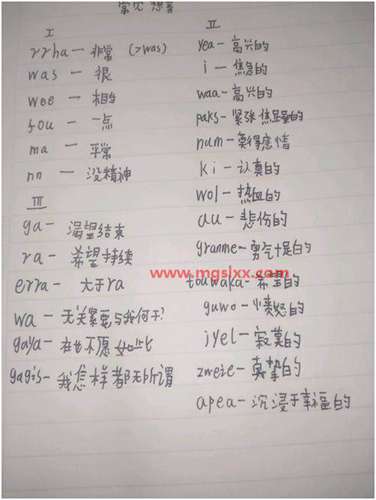 常见 想音
I
rrha — 非常 (>was)
was — 很
wee — 相当
fou — 一点
ma — 平常
nn — 没精神
III
ga — 渴望结束
ra — 希望持续
erra — 大于ra
wa — 无关紧要与我何干?
gaya — 在也不愿如此
gagis — 我怎样都无所谓
II
yea — 高兴的
i — 焦急的
waa — 高兴的
paks — 紧张焦虑的
num — 莫得感情
ki — 认真的
wol — 热血的
au — 悲伤的
granme — 勇气十足的
www.mgslxx.com
touwaka — 希望的
guwo — 愤怒的
jyel — 寂寞的
zweie — 真挚的
apea — 沉浸于幸福的